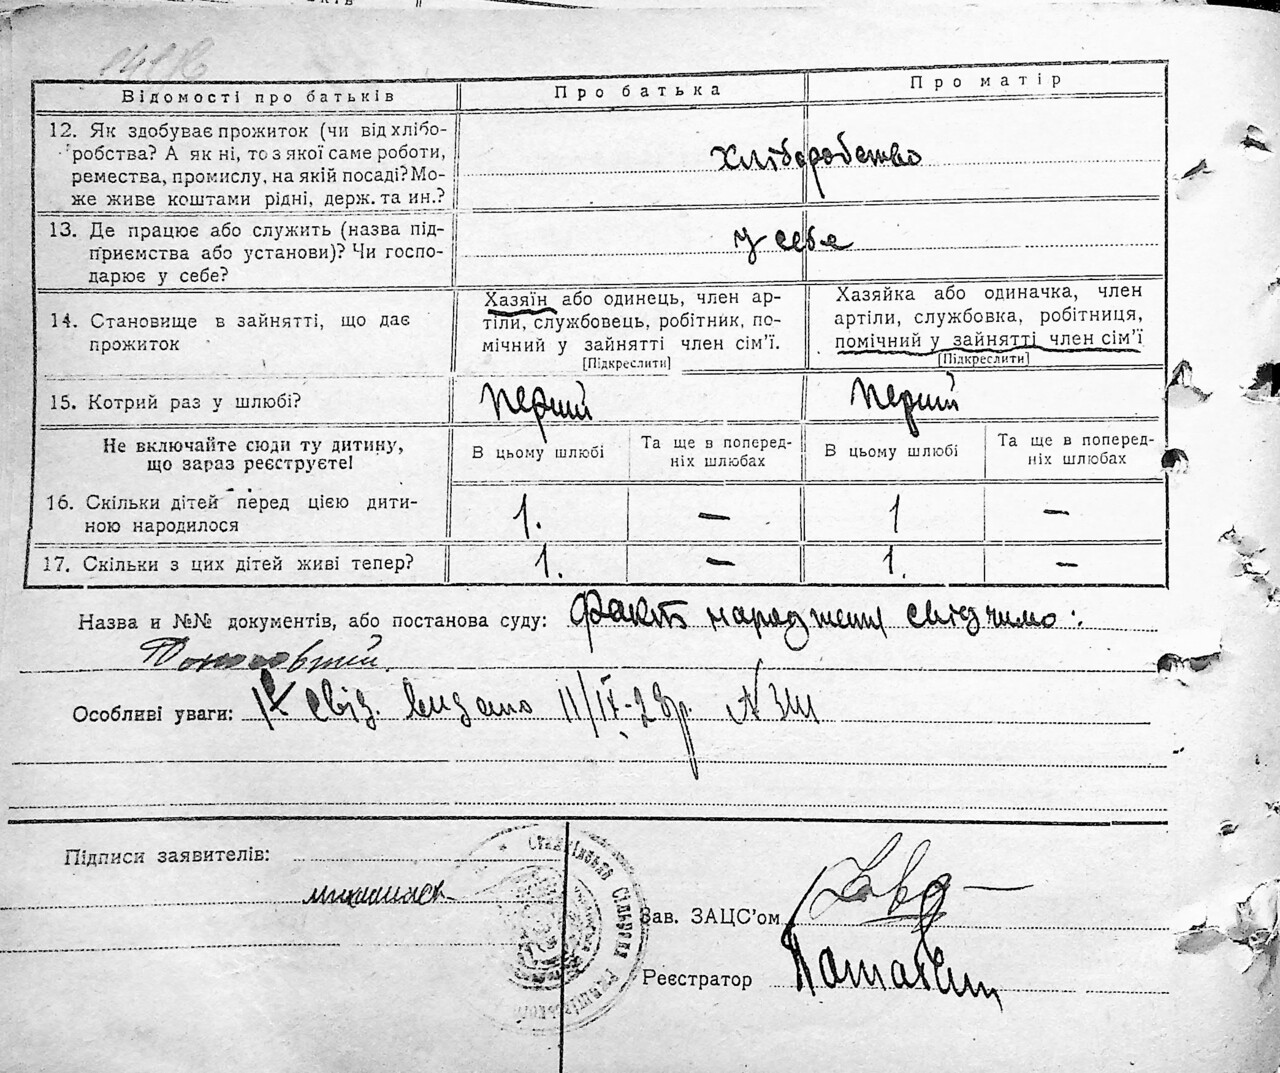 Відомості про батьків
Про батька
Про матір
12. Як здобуває прожиток (чи від хлібо-
робства? А як ні, то з якої саме роботи,
ремества, промислу, на якій посаді? Мо-
же живе коштами рідні, держ. та ин.?
хліборобство
13. Де працює або служить (назва під-
приємства або установи)? Чи госпо-
дарює у себе?
у себе
14. Становище в зайнятті, що дає
прожиток
Хазяїн або одинець, член ар-
тіли, службовець, робітник, по-
мічний у зайнятті член сім'ї.
[Підкреслити]
Хазяйка або одиначка, член
артіли, службовка, робітниця,
помічний у зайнятті член сім'ї
[Підкреслити]
15. Котрий раз у шлюбі?
перший
перший
Не включайте сюди ту дитину,
що зараз реєструєте!
В цьому шлюбі
Та ще в поперед-
ніх шлюбах
В цьому шлюбі
Та ще в поперед-
ніх шлюбах
16. Скільки дітей перед цією дити-
ною народилося
1. — 1 —
17. Скільки з цих дітей живі тепер?
1. — 1. —
Назва и №№ документів, або постанова суду: Факт народження свідчимо:
Особливі уваги: свід. видано 11/IX-28р. N
Підписи заявителів:
Сільрада
Зав. ЗАЦС'ом
Реєстратор